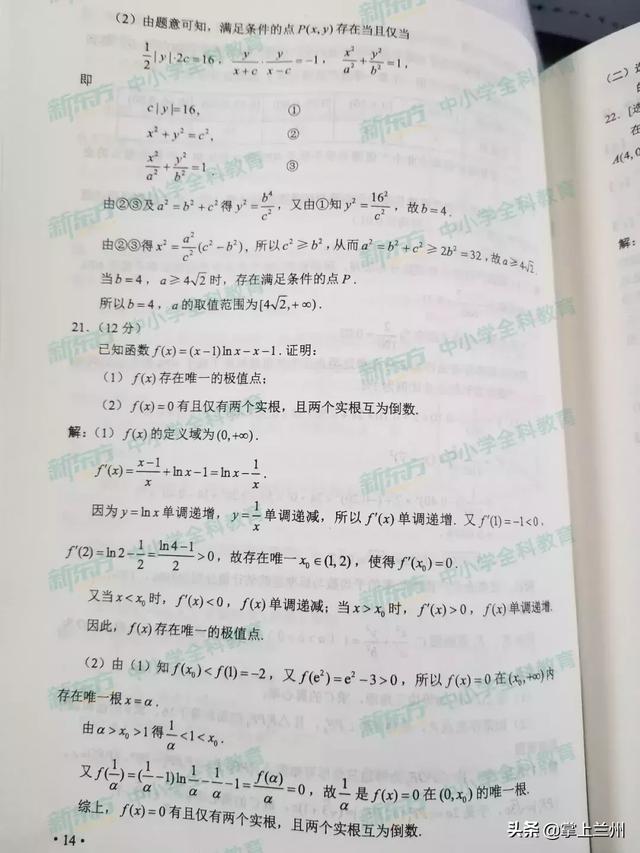 (2) 由题意可知，满足条件的点P(x,y)存在当且仅当
1/2|y|·2c=16，y/(x+c)·y/(x−c)=−1，x²/a²+y²/b²=1，
即
c|y|=16, ①
x²+y²=c², ②
x²/a²+y²/b²=1. ③
由②③及a²=b²+c²得y²=b⁴/c²，又由①知y²=16²/c²，故b=4.
由②③得x²=a²/c²(c²−b²)，所以c²≥b²，从而a²=b²+c²≥2b²=32，故a≥4√2.
当b=4，a≥4√2时，存在满足条件的点P.
所以b=4，a的取值范围为[4√2,+∞).
21.(12分)
已知函数f(x)=(x−1)ln x−x−1.证明：
(1) f(x)存在唯一的极值点；
(2) f(x)=0有且仅有两个实根，且两个实根互为倒数.
解：(1) f(x)的定义域为(0,+∞).
f′(x)=(x−1)/x+ln x−1=ln x−1/x.
因为y=ln x单调递增，y=1/x单调递减，所以f′(x)单调递增.又f′(1)=−1<0，
f′(2)=ln2−1/2=(ln4−1)/2>0，故存在唯一x₀∈(1,2)，使得f′(x₀)=0.
又当x<x₀时，f′(x)<0，f(x)单调递减；当x>x₀时，f′(x)>0，f(x)单调递增.
因此，f(x)存在唯一的极值点.
(2) 由(1)知f(x₀)<f(1)=−2，又f(e²)=e²−3>0，所以f(x)=0在(x₀,+∞)内
存在唯一根x=α.
由α>x₀>1得1/α<1<x₀.
又f(1/α)=(1/α−1)ln 1/α−1/α−1=f(α)/α=0，故1/α是f(x)=0在(0,x₀)的唯一根.
综上，f(x)=0有且仅有两个实根，且两个实根互为倒数.
·14·
(二) 选
22.[选
在
A(4,0
解：
新东方 中小学全科教育
头条 @掌上兰州